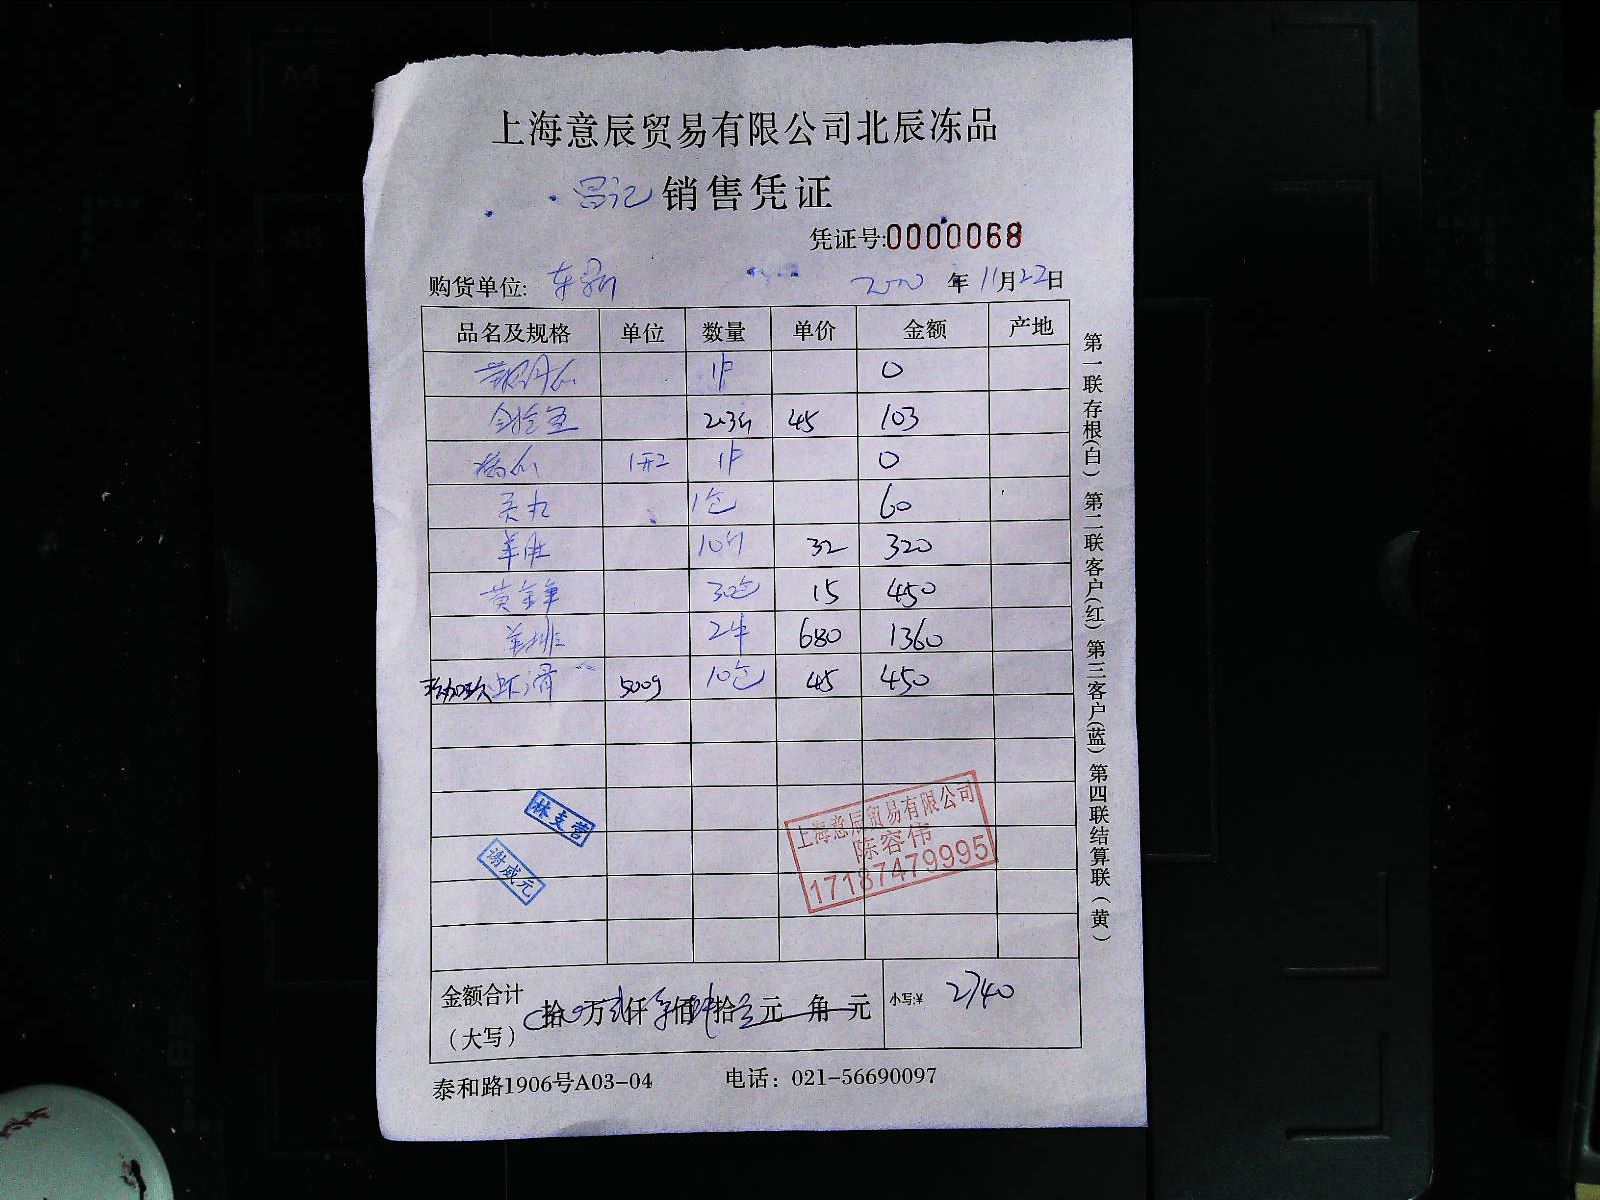 上海意辰贸易有限公司北辰冻品
昌记 销售凭证
凭证号:0000068
购货单位: 年11月22日
品名及规格 单位 数量 单价 金额 产地
1件 0
45 103
1件 0
贡丸 1包 60
羊肚 10斤 32 320
黄金 30包 15 450
羊排 2件 680 1360
虾滑 500g 10包 45 450
林支营
谢威元
上海意辰贸易有限公司
陈容伟
17187479995
金额合计
(大写) 拾 万 仟 佰 拾 元 角 元 小写:¥ 2740
泰和路1906号A03-04 电话: 021-56690097
第一联存根(白) 第二联客户(红) 第三客户(蓝) 第四联结算联(黄)